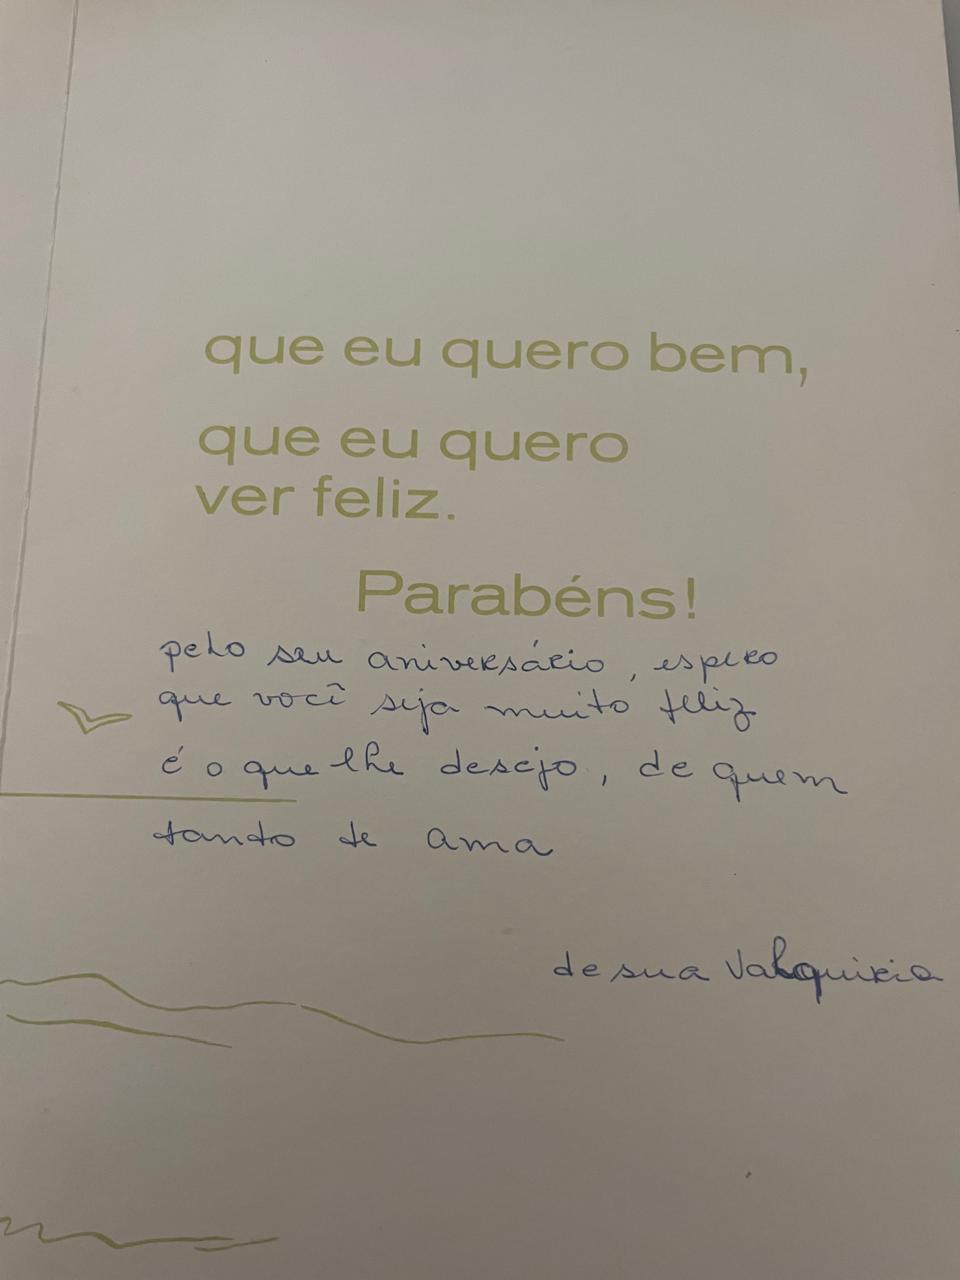 que eu quero bem,
que eu quero
ver feliz.
Parabéns!
pelo seu aniversário, espero
que você seja muito feliz
é o que lhe desejo, de quem
tanto te ama
de sua Valquiria